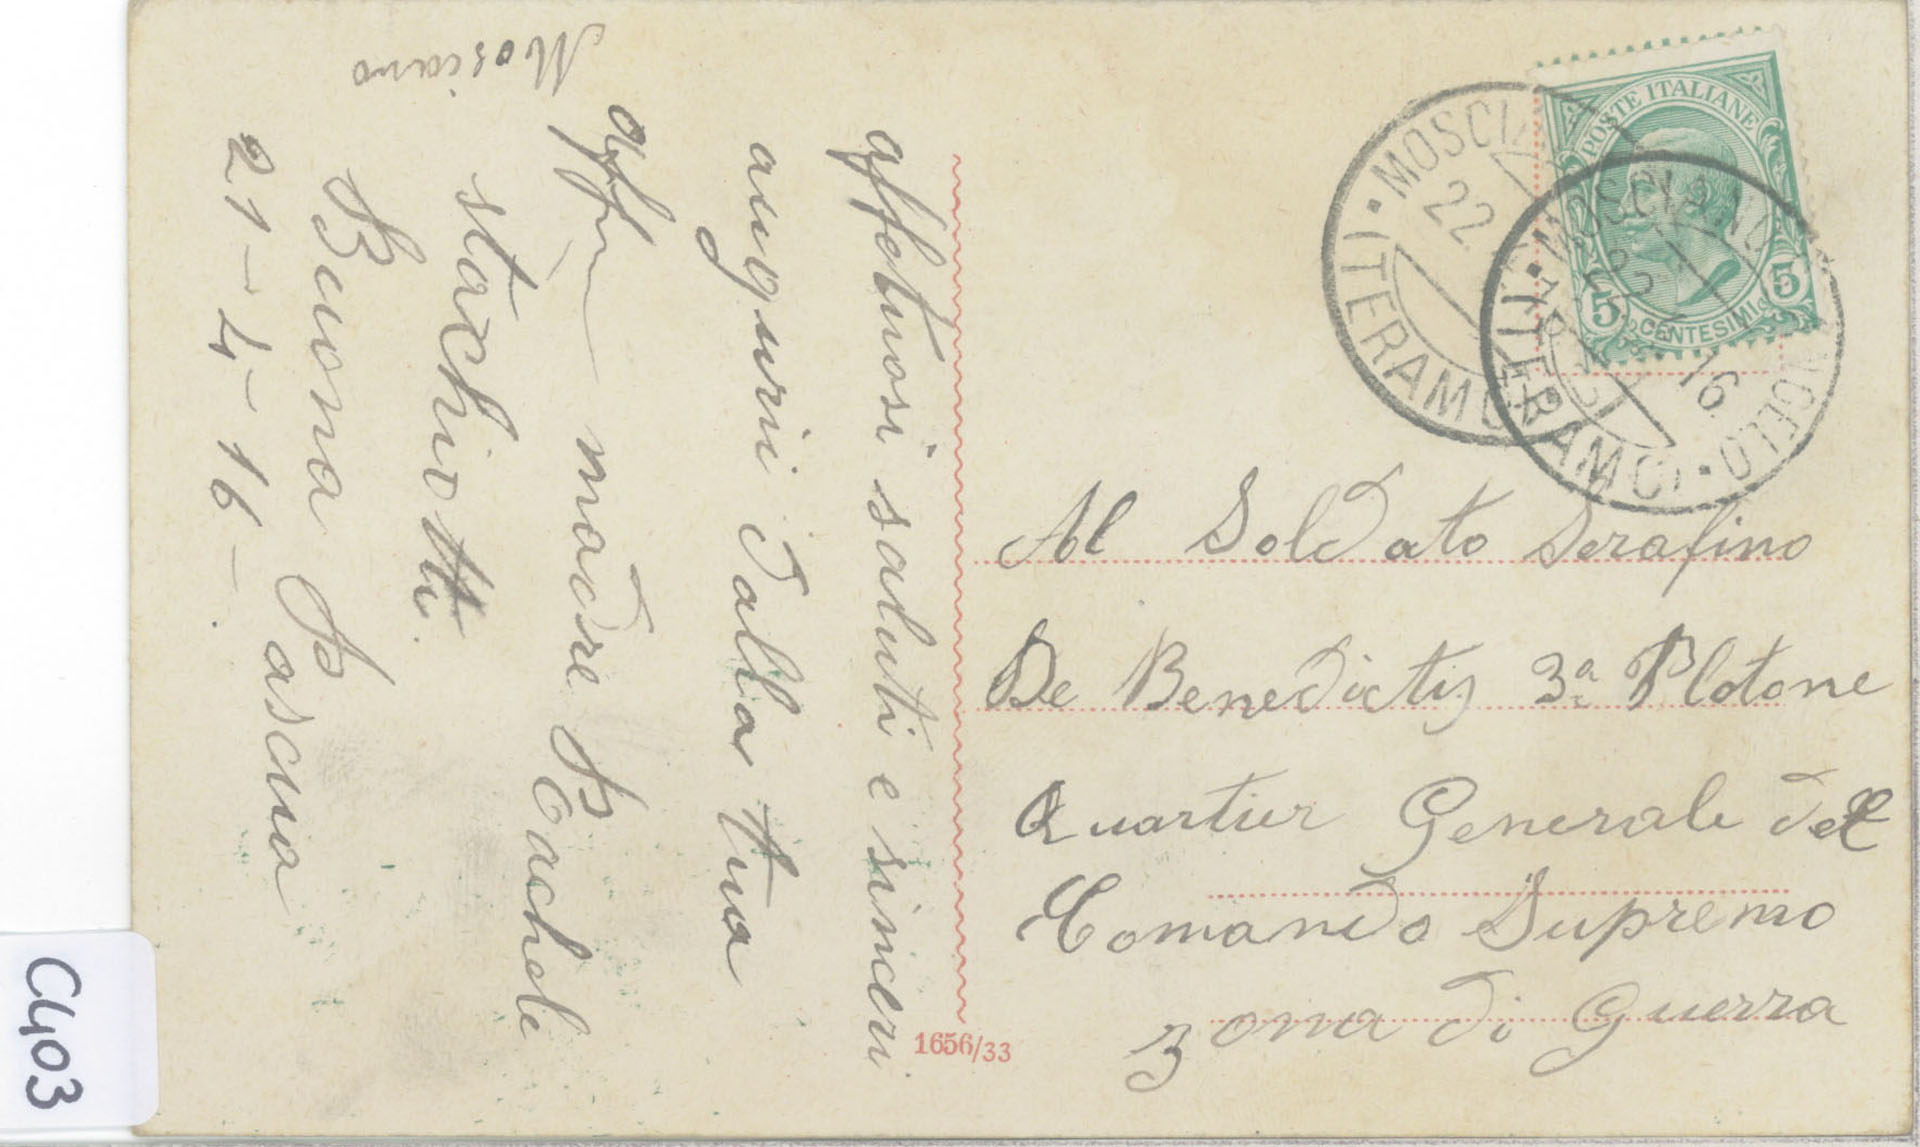 Mosciano
affettuosi saluti e sinceri
auguri dalla tua
aff madre Rachele
stachiotti.
Buona Pascua
21-4-16-
POSTE ITALIANE
5 5
CENTESIMI
MOSCIA
22
(TERAMO)
MOSCIANO
16
(TERAMO)
Al Soldato Serafino
De Benedictis 3ª Plotone
Quartier Generale del
Comando Supremo
Zona di Guerra
1656/33
C403